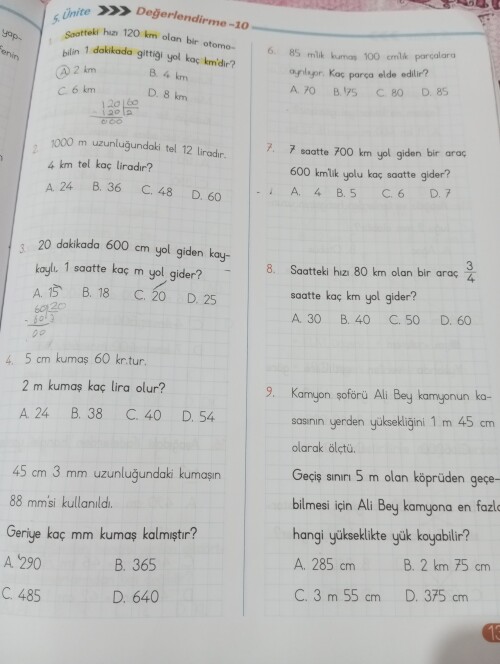 yap-
enin
5. Ünite Değerlendirme -10
Saatteki hızı 120 km olan bir otomo-
bilin 1 dakikada gittiği yol kaç km'dir?
A. 2 km B. 4 km
C. 6 km D. 8 km
120 60
120 2
000
2. 1000 m uzunluğundaki tel 12 liradır.
4 km tel kaç liradır?
A. 24 B. 36 C. 48 D. 60
3. 20 dakikada 600 cm yol giden kay-
kaylı. 1 saatte kaç m yol gider?
A. 15 B. 18 C. 20 D. 25
00
4. 5 cm kumaş 60 kr.tur.
2 m kumaş kaç lira olur?
A. 24 B. 38 C. 40 D. 54
45 cm 3 mm uzunluğundaki kumaşın
88 mm'si kullanıldı.
Geriye kaç mm kumaş kalmıştır?
A. 290 B. 365
C. 485 D. 640
6. 85 m'lik kumaş 100 cm'lik parçalara
ayrılıyor. Kaç parça elde edilir?
A. 70 B. 75 C. 80 D. 85
7. 7 saatte 700 km yol giden bir araç
600 km'lik yolu kaç saatte gider?
A. 4 B. 5 C. 6 D. 7
8. Saatteki hızı 80 km olan bir araç 3/4
saatte kaç km yol gider?
A. 30 B. 40 C. 50 D. 60
9. Kamyon şoförü Ali Bey kamyonun ka-
sasının yerden yüksekliğini 1 m 45 cm
olarak ölçtü.
Geçiş sınırı 5 m olan köprüden geçe-
bilmesi için Ali Bey kamyona en fazla
hangi yükseklikte yük koyabilir?
A. 285 cm B. 2 km 75 cm
C. 3 m 55 cm D. 375 cm